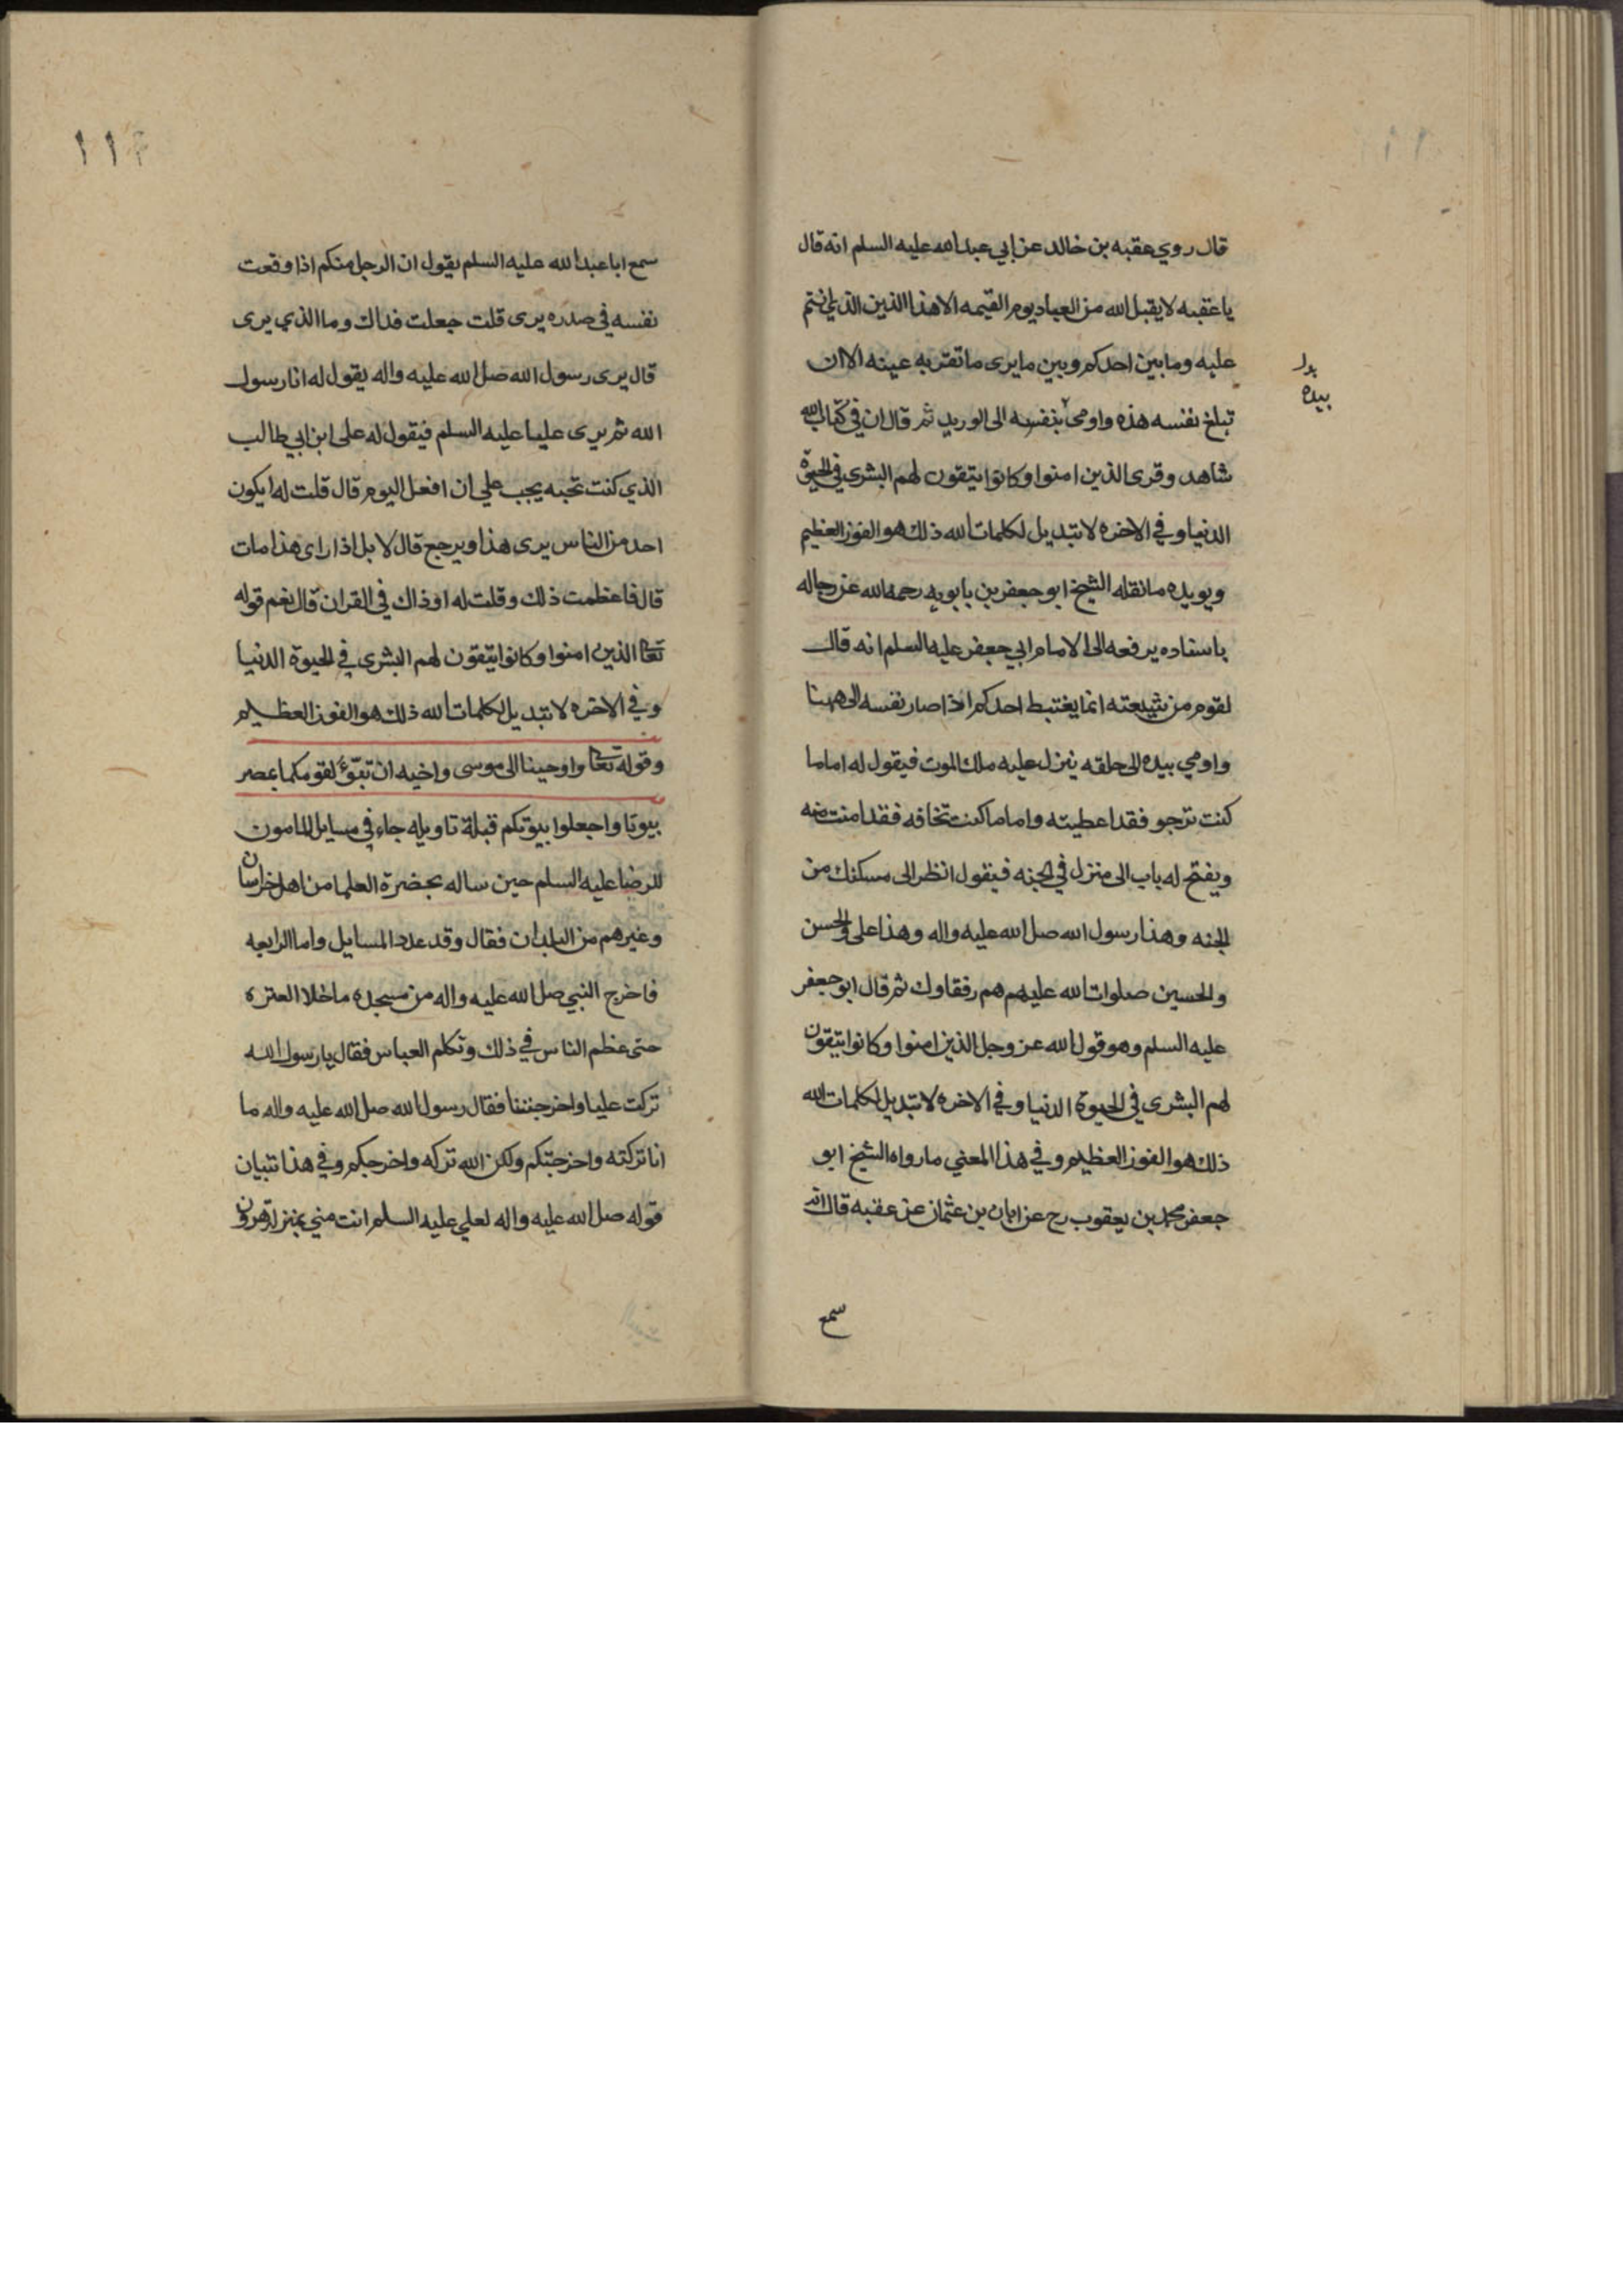 قال روي عقبه بن خالد عن ابي عبد الله عليه السلم انه قال
يا عقبه لا يقبل الله من العباد يوم القيمه الا هذا الدين الذي انتم
عليه وما بين احدكم وبين ما يرى ما تقر به عينه الا ان
بدل
بيده
تبلغ نفسه هذه واومى بنفسه الى الوريد ثم قال ان في كتاب الله
شاهد وقرى الذين امنوا وكانوا يتقون لهم البشرى في الحيوة
الدنيا وفي الاخره لا تبديل لكلمات الله ذلك هو الفوز العظيم
ويويده ما نقله الشيخ ابو جعفر بن بابويه رحمه الله عن رجاله
باسناده يرفعه الى الامام ابي جعفر عليه السلم انه قال
لقوم من شيعته انما يغتبط احدكم اذا صار نفسه الى ههنا
واومي بيده الى حلقه ينزل عليه ملك الموت فيقول له اما ما
كنت ترجو فقد اعطيته واما ما كنت تخافه فقد امنت منه
ويفتح له باب الى منزل في الجنه فيقول انظر الى مسكنك من
الجنه وهذا رسول الله صلى الله عليه واله وهذا على والحسن
والحسين صلوات الله عليهم هم رفقاوك ثم قال ابو جعفر
عليه السلم وهو قول الله عز وجل الذين امنوا وكانوا يتقون
لهم البشرى في الحيوة الدنيا وفي الاخره لا تبديل لكلمات الله
ذلك هو الفوز العظيم وفي هذا المعني ما رواه الشيخ ابو
جعفر محمد بن يعقوب رح عن ابان بن عثمان عن عقبه قال انه
سمع
١١٤
سمع ابا عبد الله عليه السلم يقول ان الرجل منكم اذا وقعت
نفسه في صدره يرى قلت جعلت فداك وما الذي يرى
قال يرى رسول الله صلى الله عليه واله يقول له انا رسول
الله ثم يرى عليا عليه السلم فيقول له على ابن ابي طالب
الذي كنت تحبه يجب علي ان افعل اليوم قال قلت له ايكون
احد من الناس يرى هذا ويرجع قال لا بل اذا راى هذا مات
قال فاعظمت ذلك وقلت له او ذاك في القران قال نعم قوله
تعا الذين امنوا وكانوا يتقون لهم البشرى في الحيوة الدنيا
وفي الاخره لا تبديل لكلمات الله ذلك هو الفوز العظيم
وقوله تعا واوحينا الى موسى واخيه ان تبوّئ لقومكما بمصر
بيوتا واجعلوا بيوتكم قبلة تاويله جاء في مسايل المامون
للرضا عليه السلم حين ساله بحضرة العلما من اهل خراسان
وغيرهم من البلدان فقال وقد عدد المسايل واما الرابعه
فاخرج النبي صلى الله عليه واله من مسجده ما خلا العتره
حتى عظم الناس في ذلك وتكلم العباس فقال يا رسول الله
تركت عليا واخرجتنا فقال رسول الله صلى الله عليه واله ما
انا تركته واخرجتكم ولكن الله تركه واخرجكم وفي هذا تبيان
قوله صلى الله عليه واله لعلي عليه السلم انت مني بمنزلة هرون